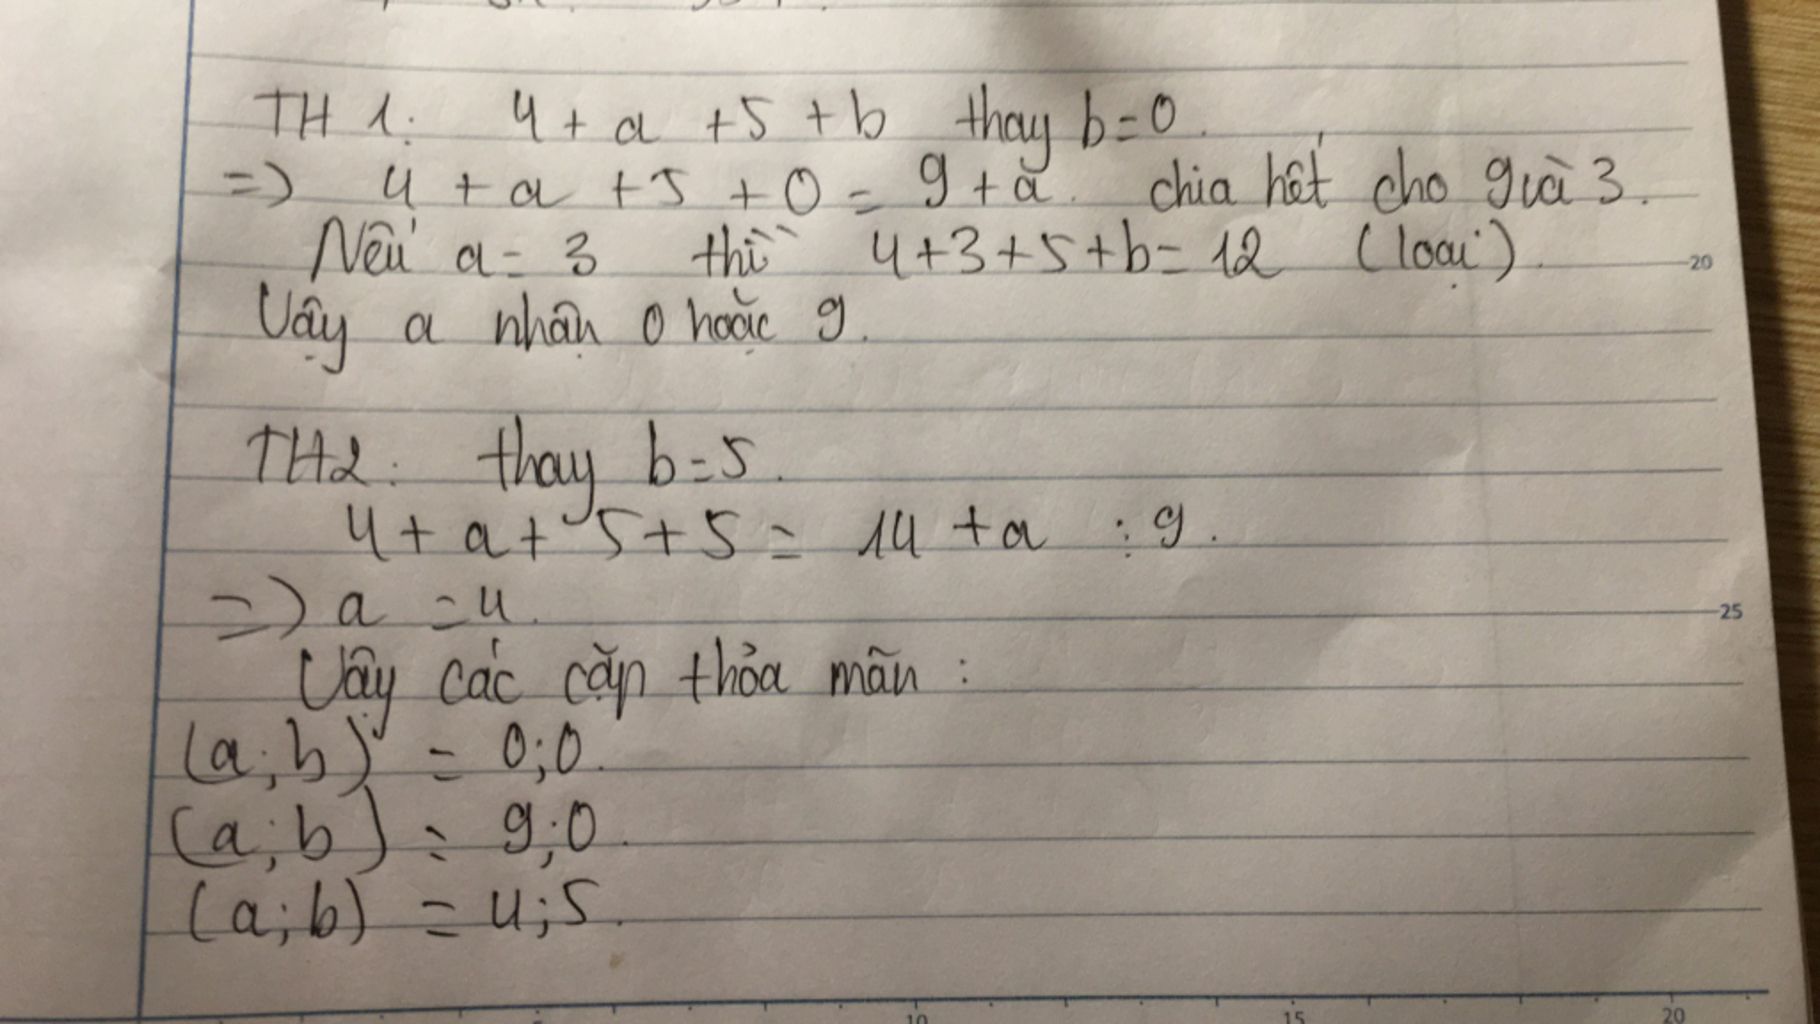 TH 1: 4 + a + 5 + b thay b = 0.
=> 4 + a + 5 + 0 = 9 + a. chia hết cho 9 và 3.
Nếu a = 3 thì 4 + 3 + 5 + b = 12 (loại).
Vậy a nhận 0 hoặc 9.
TH2: thay b = 5.
4 + a + 5 + 5 = 14 + a ⋮ 9.
=> a = 4.
Vậy các cặp thỏa mãn :
(a; b) = 0; 0.
(a; b) = 9; 0.
(a; b) = 4; 5.
20
25
10
15
20